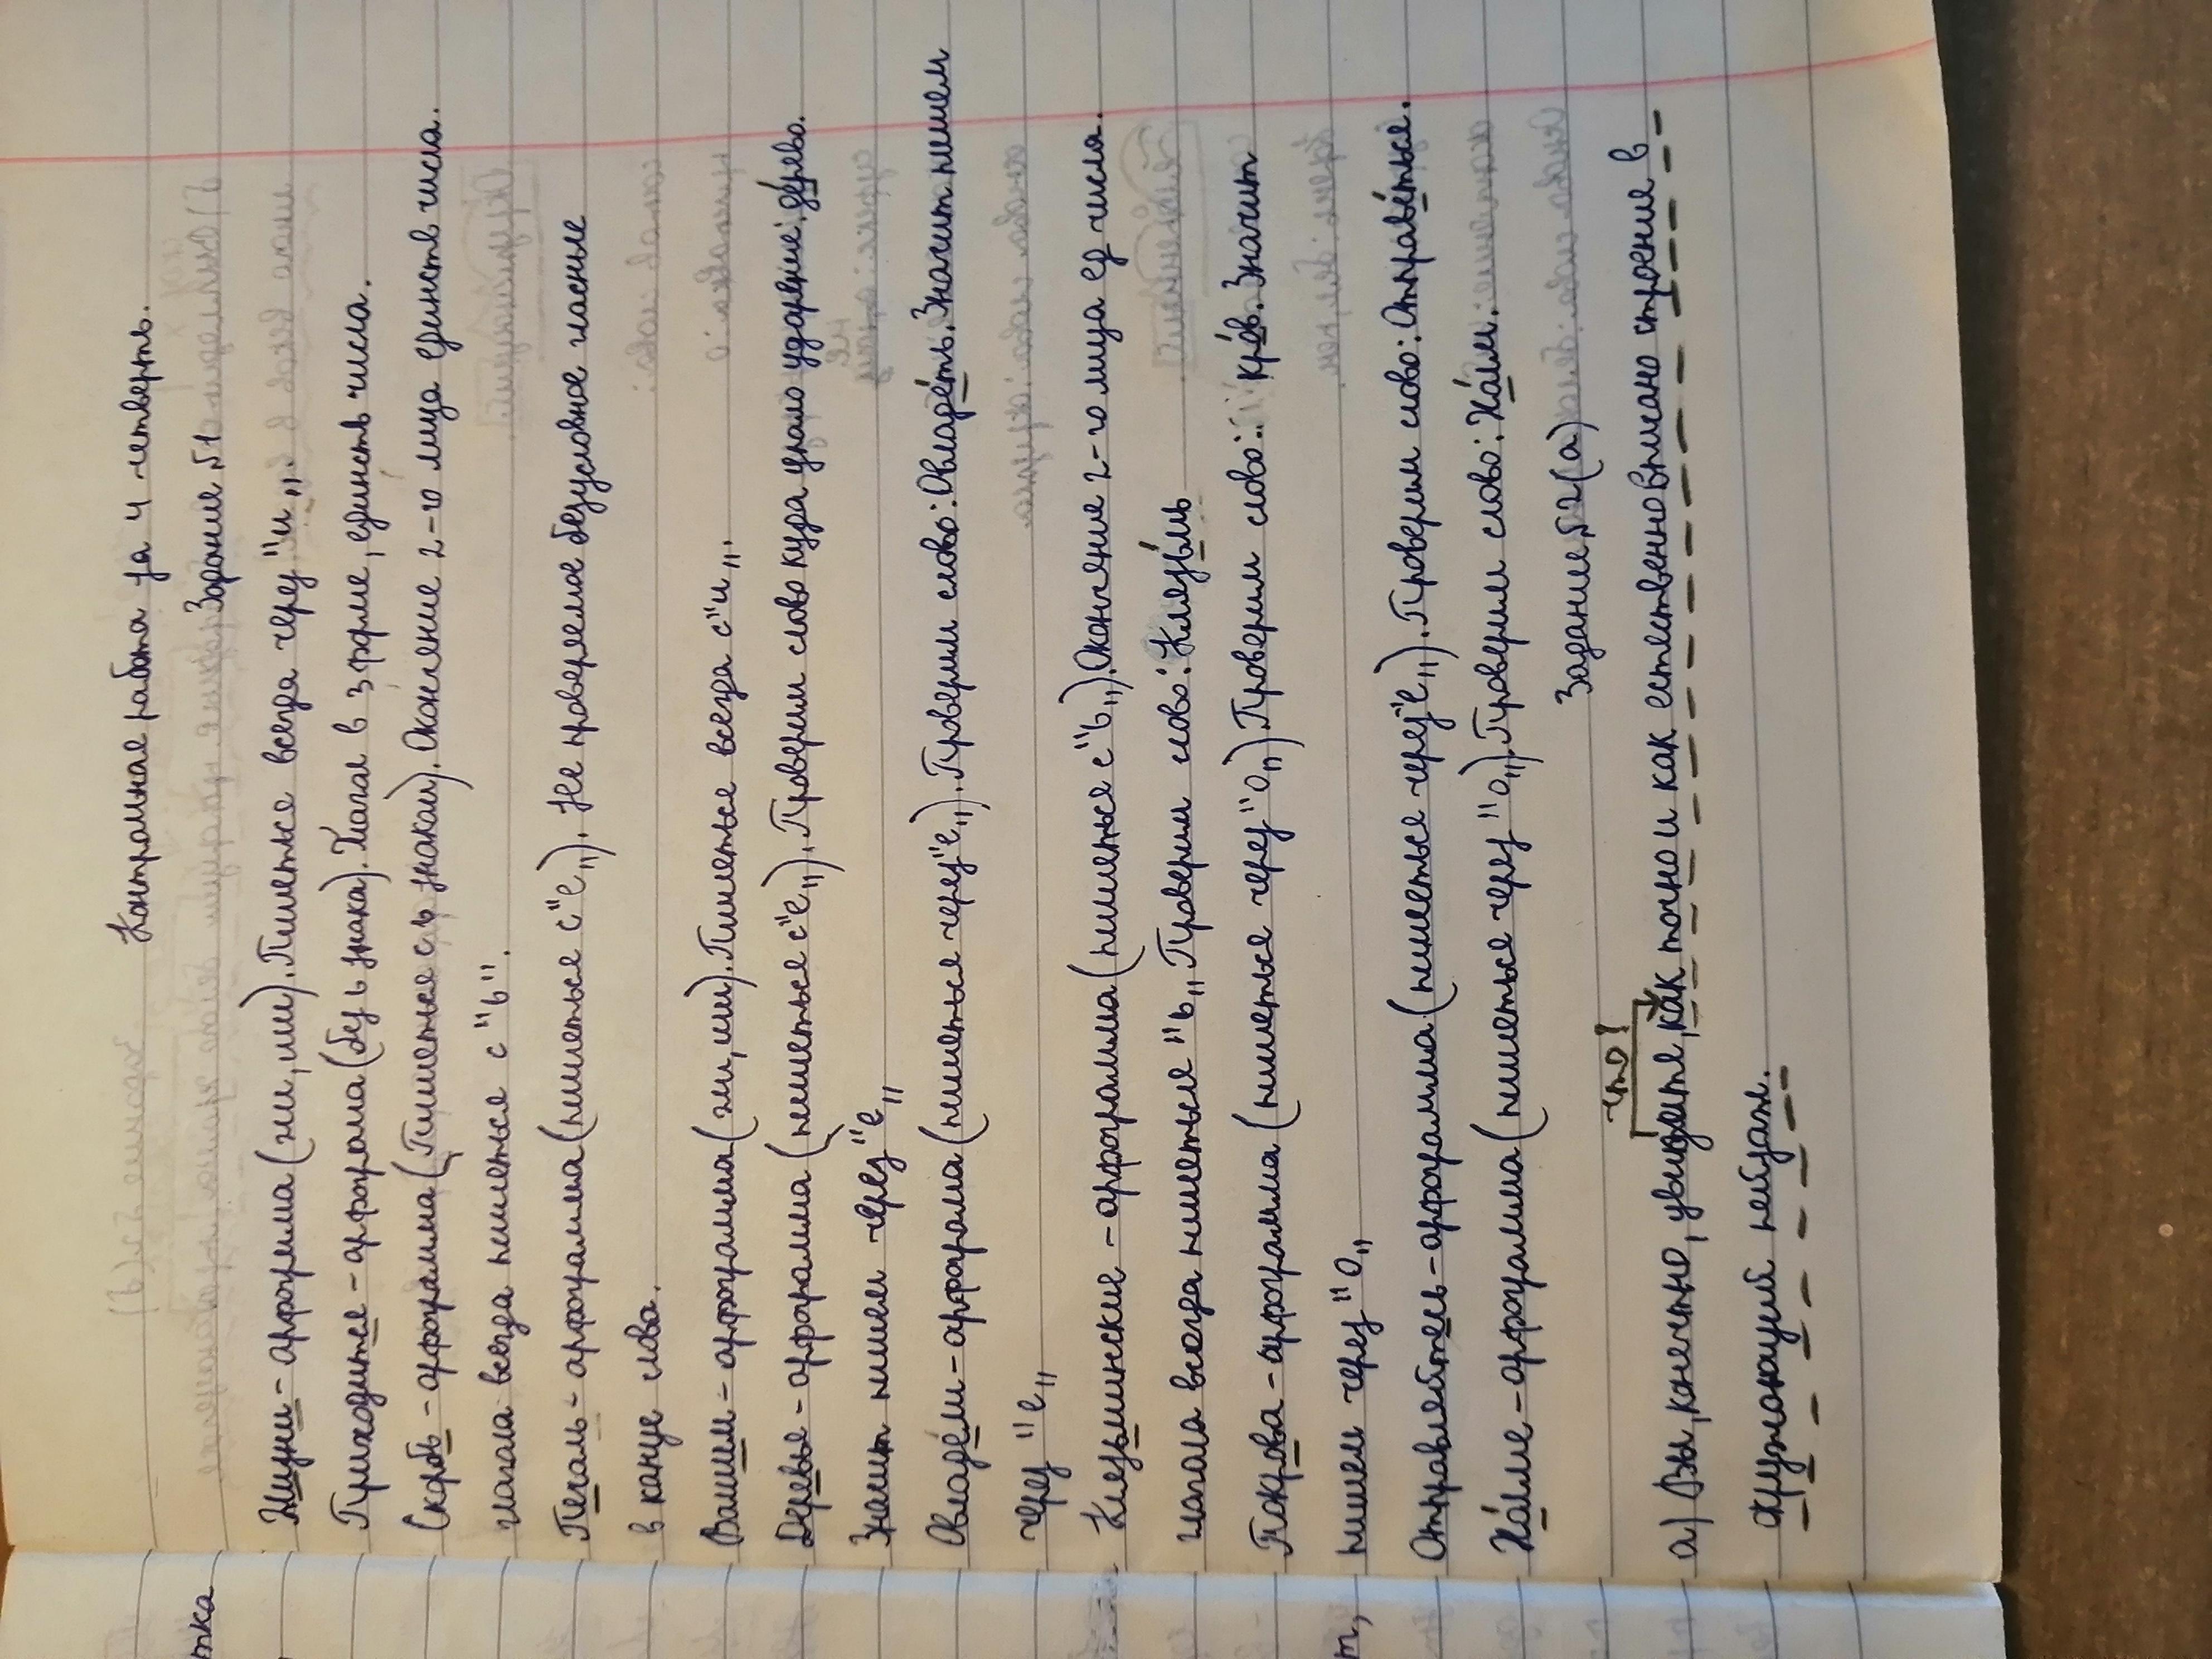 Контрольная работа за 4 четверть.
Задание №1
Жизни - орфограмма (жи, ши). Пишеться всегда через "и„.
Приходится - орфограмма (без ь знака). Глагол в 3 форме, единств числа.
Скорбь - орфограмма (Пишеться с ь знаком). Окончение 2-го лица единств числа.
глагола всегда пишеться с "ь".
Печаль - орфограмма (пишеться с "е„). Не проверяемое безусловное гласные
в конце слова.
Вашим - орфограмма (жи, ши). Пишеться всегда с "и„.
Деревья - орфограмма (пишеться с "е„). Проверим слово куда упало ударение: дерево.
Значит пишем через "е„
Овладели - орфограмма (пишеться через "е„). Проверим слово: Овладеть. Значит пишем
через "е„
Клязьминские - орфограмма (пишеться с "ь„). Окончание 2-го лица ед числа.
глагола всегда пишеться "ь„. Проверим слово:
Покрова - орфограмма (пишеться через "о„). Проверим слово: кров. Значит
пишем через "о„
- орфограмма (пишеться через "е„). Проверим слово:
- орфограмма (пишеться через "о„). Проверим слово: Холм.
Задание №2(а)
что?
а) Вы, конечно, увидите, как точно и как естественно вписано строение в
окружающий пейзаж.
тка
т,